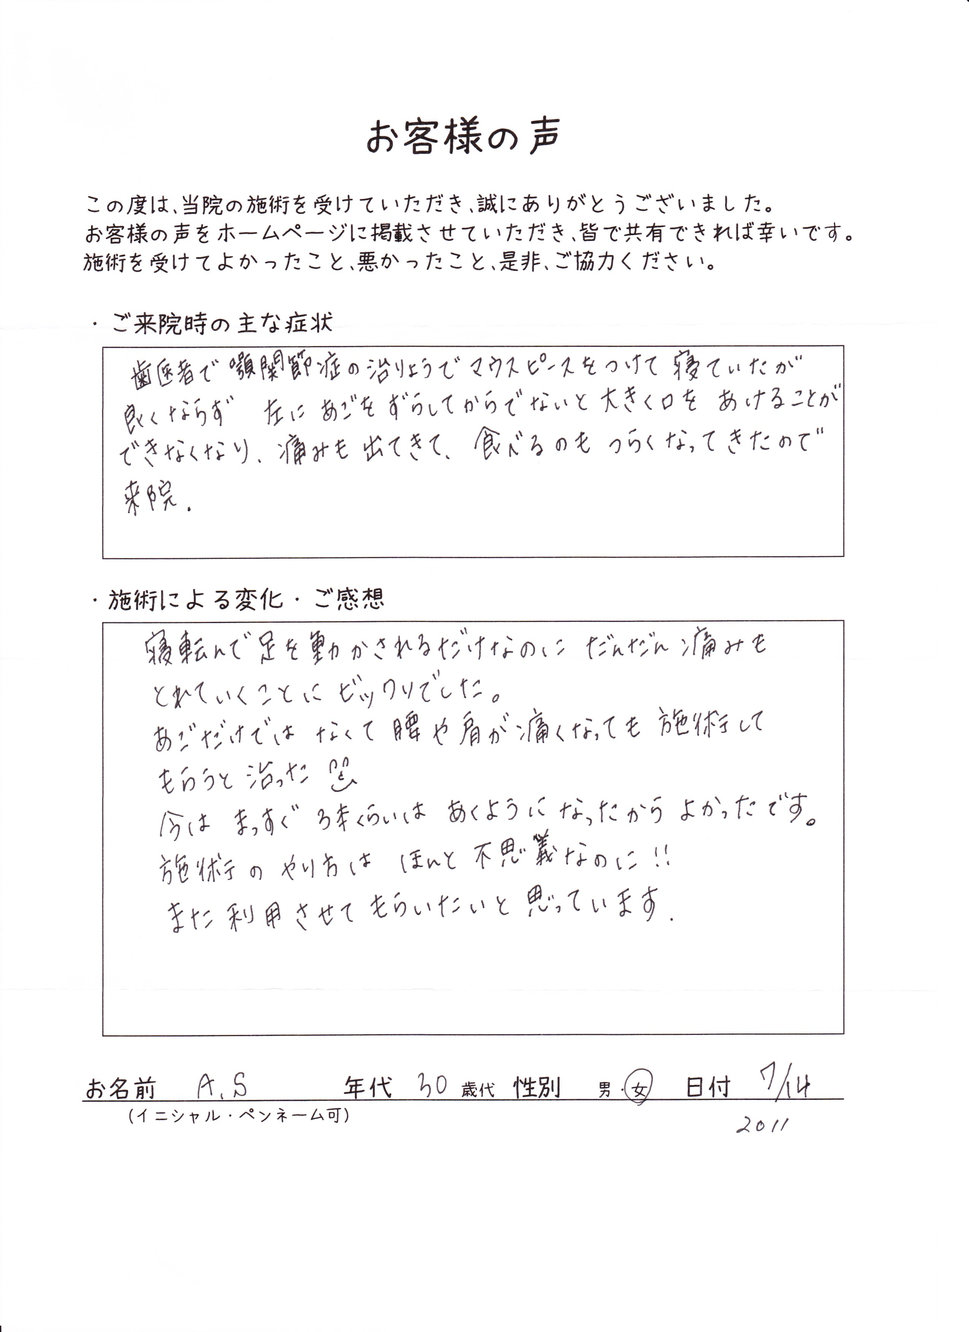 お客様の声
この度は、当院の施術を受けていただき、誠にありがとうございました。
お客様の声をホームページに掲載させていただき、皆で共有できれば幸いです。
施術を受けてよかったこと、悪かったこと、是非、ご協力ください。
・ご来院時の主な症状
歯医者で顎関節症の治りょうでマウスピースをつけて寝ていたが
良くならず 左にあごをずらしてからでないと大きく口をあけることが
できなくなり、痛みも出てきて、食べるのもつらくなってきたので
来院.
・施術による変化・ご感想
寝転んで足を動かされるだけなのに だんだん痛みも
とれていくことにビックリでした。
あごだけではなくて腰や肩が痛くなっても施術して
もらうと治った
今は まっすぐ 3本くらいは あくようになったから よかったです。
施術のやり方は ほんと不思議なのに!!
また利用させてもらいたいと思っています.
お名前 A.S 年代 30歳代 性別 男・女 日付 7/14
(イニシャル・ペンネーム可)
2011